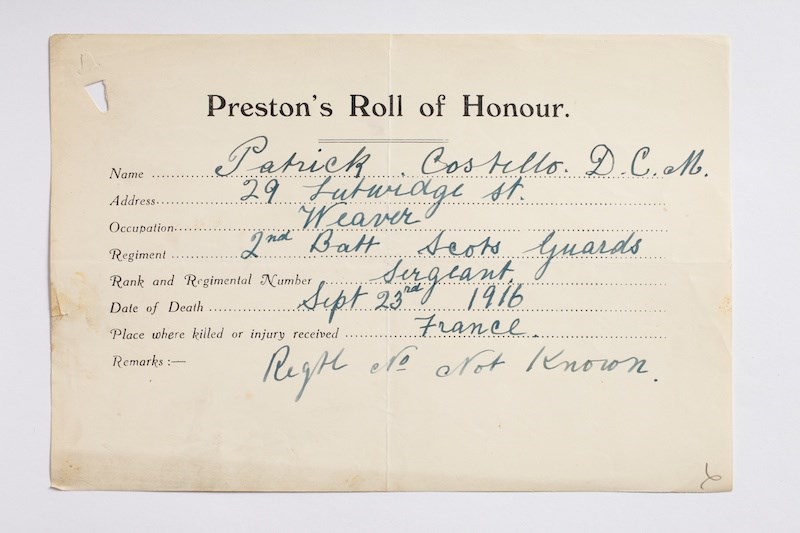 Preston's Roll of Honour.
Name Patrick Costello. D.C.M.
Address 29 Lutwidge st.
Occupation Weaver
Regiment 2nd Batt Scots Guards
Rank and Regimental Number Sergeant.
Date of Death Sept 23rd 1916
Place where killed or injury received France.
Remarks :— Regtl No Not Known.